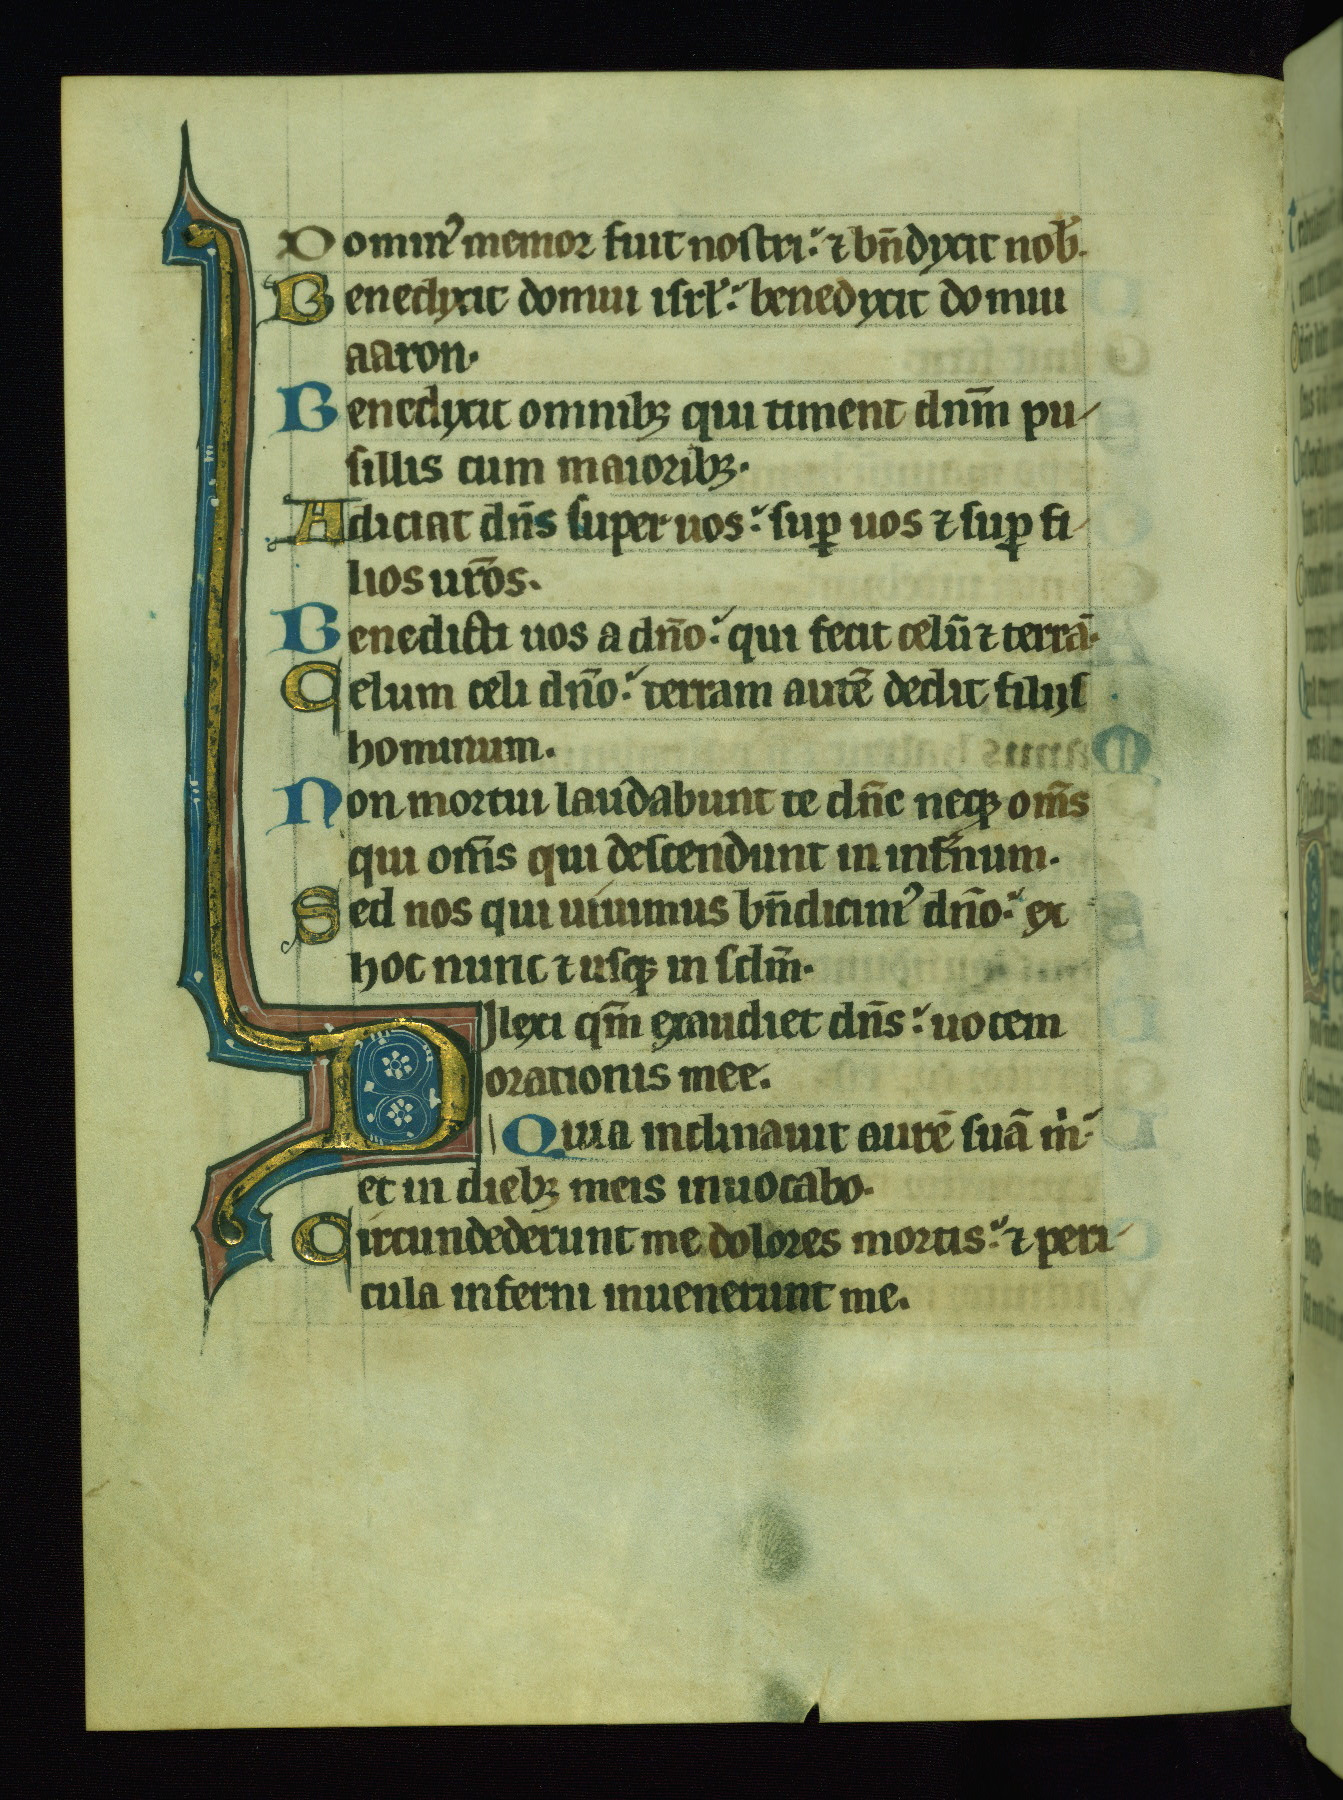 Domin᾿ memor fuit nostri: ⁊ bn̄dyxit nob̄.
Benedyxit domui isrl̄: benedyxit domui
aaron.
Benedyxit omnibꝫ qui timent dnm̄ pu
sillis cum maioribꝫ.
Adiciat dn̄s super uos: suꝑ uos ⁊ suꝑ fi
lios ur̄os.
Benedicti uos a dn̄o: qui fecit celū ⁊ terrā.
Celum celi dn̄o: terram autē dedit filijs
hominum.
Non mortui laudabunt te dn̄e neqꝫ om̄s
qui om̄s qui descendunt in inf̄num.
Sed nos qui uiuimus bn̄dicim᾿ dn̄o: ex
hoc nunc ⁊ usqꝫ in sclm̄.
Dilexi qm̄ exaudiet dn̄s: uocem
orationis mee.
Quia inclinauit aurē suā m̄:
et in diebꝫ meis inuocabo.
Circundederunt me dolores mortis: ⁊ peri
cula inferni inuenerunt me.